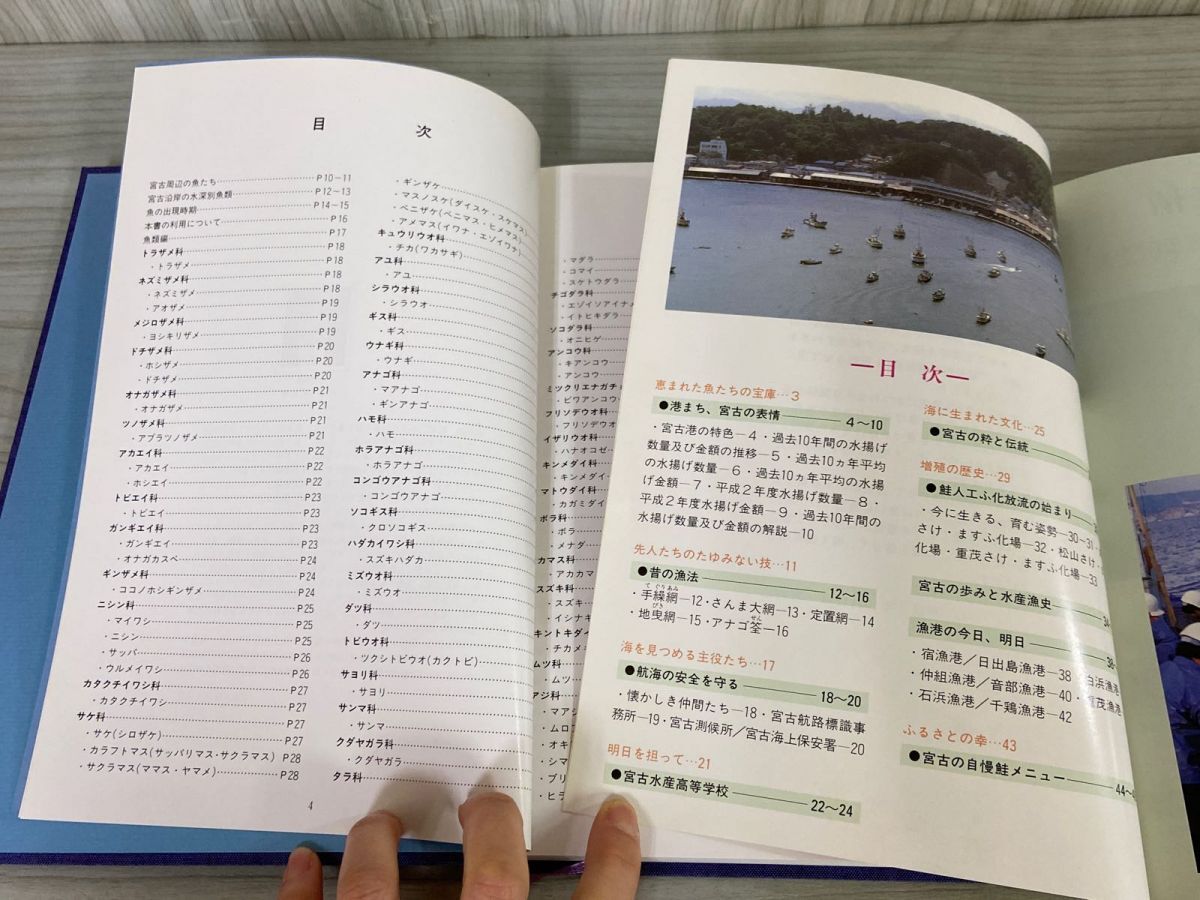 目次
宮古周辺の魚たち……P10−11
宮古沿岸の水深別魚類……P12−13
魚の出現時期……P14〜15
本書の利用について……P16
魚類編……P17
トラザメ科……P18
・トラザメ……P18
ネズミザメ科……P18
・ネズミザメ……P18
・アオザメ……P19
メジロザメ科……P19
・ヨシキリザメ……P19
ドチザメ科……P20
・ホシザメ……P20
・ドチザメ……P20
オナガザメ科……P21
・オナガザメ……P21
ツノザメ科……P21
・アブラツノザメ……P21
アカエイ科……P22
・アカエイ……P22
・ホシエイ……P22
トビエイ科……P23
・トビエイ……P23
ガンギエイ科……P23
・ガンギエイ……P23
・オナガカスベ……P24
ギンザメ科……P24
・ココノホシギンザメ……P24
ニシン科……P25
・マイワシ……P25
・ニシン……P25
・サッパ……P26
・ウルメイワシ……P26
カタクチイワシ科……P27
・カタクチイワシ……P27
サケ科……P27
・サケ(シロザケ)……P27
・カラフトマス(サッパリマス・サクラマス)……P28
・サクラマス(ママス・ヤマメ)……P28
・ギンザケ……
・マスノスケ(ダイスケ・スケマス)
・ベニザケ(ベニマス・ヒメマス)
・アメマス(イワナ・エゾイワナ)
キュウリウオ科……
・チカ(ワカサギ)……
アユ科……
・アユ……
シラウオ科……
・シラウオ……
ギス科……
・ギス……
ウナギ科……
・ウナギ……
アナゴ科……
・マアナゴ……
・ギンアナゴ……
ハモ科……
・ハモ……
ホラアナゴ科……
・ホラアナゴ……
コンゴウアナゴ科……
・コンゴウアナゴ……
ソコギス科……
・クロソコギス……
ハダカイワシ科……
・スズキハダカ……
ミズウオ科……
・ミズウオ……
ダツ科……
・ダツ……
トビウオ科……
・ツクシトビウオ(カクトビ)……
サヨリ科……
・サヨリ……
サンマ科……
・サンマ……
クダヤガラ科……
・クダヤガラ……
タラ科……
4
・マダラ
・コマイ
・スケトウダラ
チゴダラ科
・エゾイソアイナメ
・イトヒキダラ
ソコダラ科
・オニヒゲ
アンコウ科
・キアンコウ
・アンコウ
ミツクリエナガチョ
・ビワアンコウ
フリソデウオ科
・フリソデウオ
イザリウオ科
・ハナオコゼ
キンメダイ科
・キンメダイ
マトウダイ科
・カガミダイ
ボラ科
・ボラ
・メナダ
カマス科
・アカカマ
スズキ科
・スズキ
・イシナギ
キントキダイ
・チカメキ
ムツ科
・ムツ
アジ科
・マアジ
・ムロ
・オキ
・シマ
・ブリ
・ヒ
―目次―
恵まれた魚たちの宝庫…3
●港まち、宮古の表情―4〜10
・宮古港の特色―4・過去10年間の水揚げ
数量及び金額の推移―5・過去10ヵ年平均
の水揚げ数量―6・過去10ヵ年平均の水揚
げ金額―7・平成2年度水揚げ数量―8・
平成2年度水揚げ金額―9・過去10年間の
水揚げ数量及び金額の解説―10
先人たちのたゆみない技…11
●昔の漁法―12〜16
・手繰網―12・さんま大網―13・定置網―14
てぐりあみ
・地曳網―15・アナゴ筌―16
びき せん
海を見つめる主役たち…17
●航海の安全を守る―18〜20
・懐かしき仲間たち―18・宮古航路標識事
務所―19・宮古測候所／宮古海上保安署―20
明日を担って…21
●宮古水産高等学校―22〜24
海に生まれた文化…25
●宮古の粋と伝統―
増殖の歴史…29
●鮭人工ふ化放流の始まり―3
・今に生きる、育む姿勢―30〜31・
さけ・ますふ化場―32・松山さけ・
化場・重茂さけ・ますふ化場―33
宮古の歩みと水産漁史―34
漁港の今日、明日―38
・宿漁港／日出島漁港―38・白浜漁港
・仲組漁港／音部漁港―40・重茂漁港
・石浜漁港／千鶏漁港―42
ふるさとの幸…43
●宮古の自慢鮭メニュー―44〜